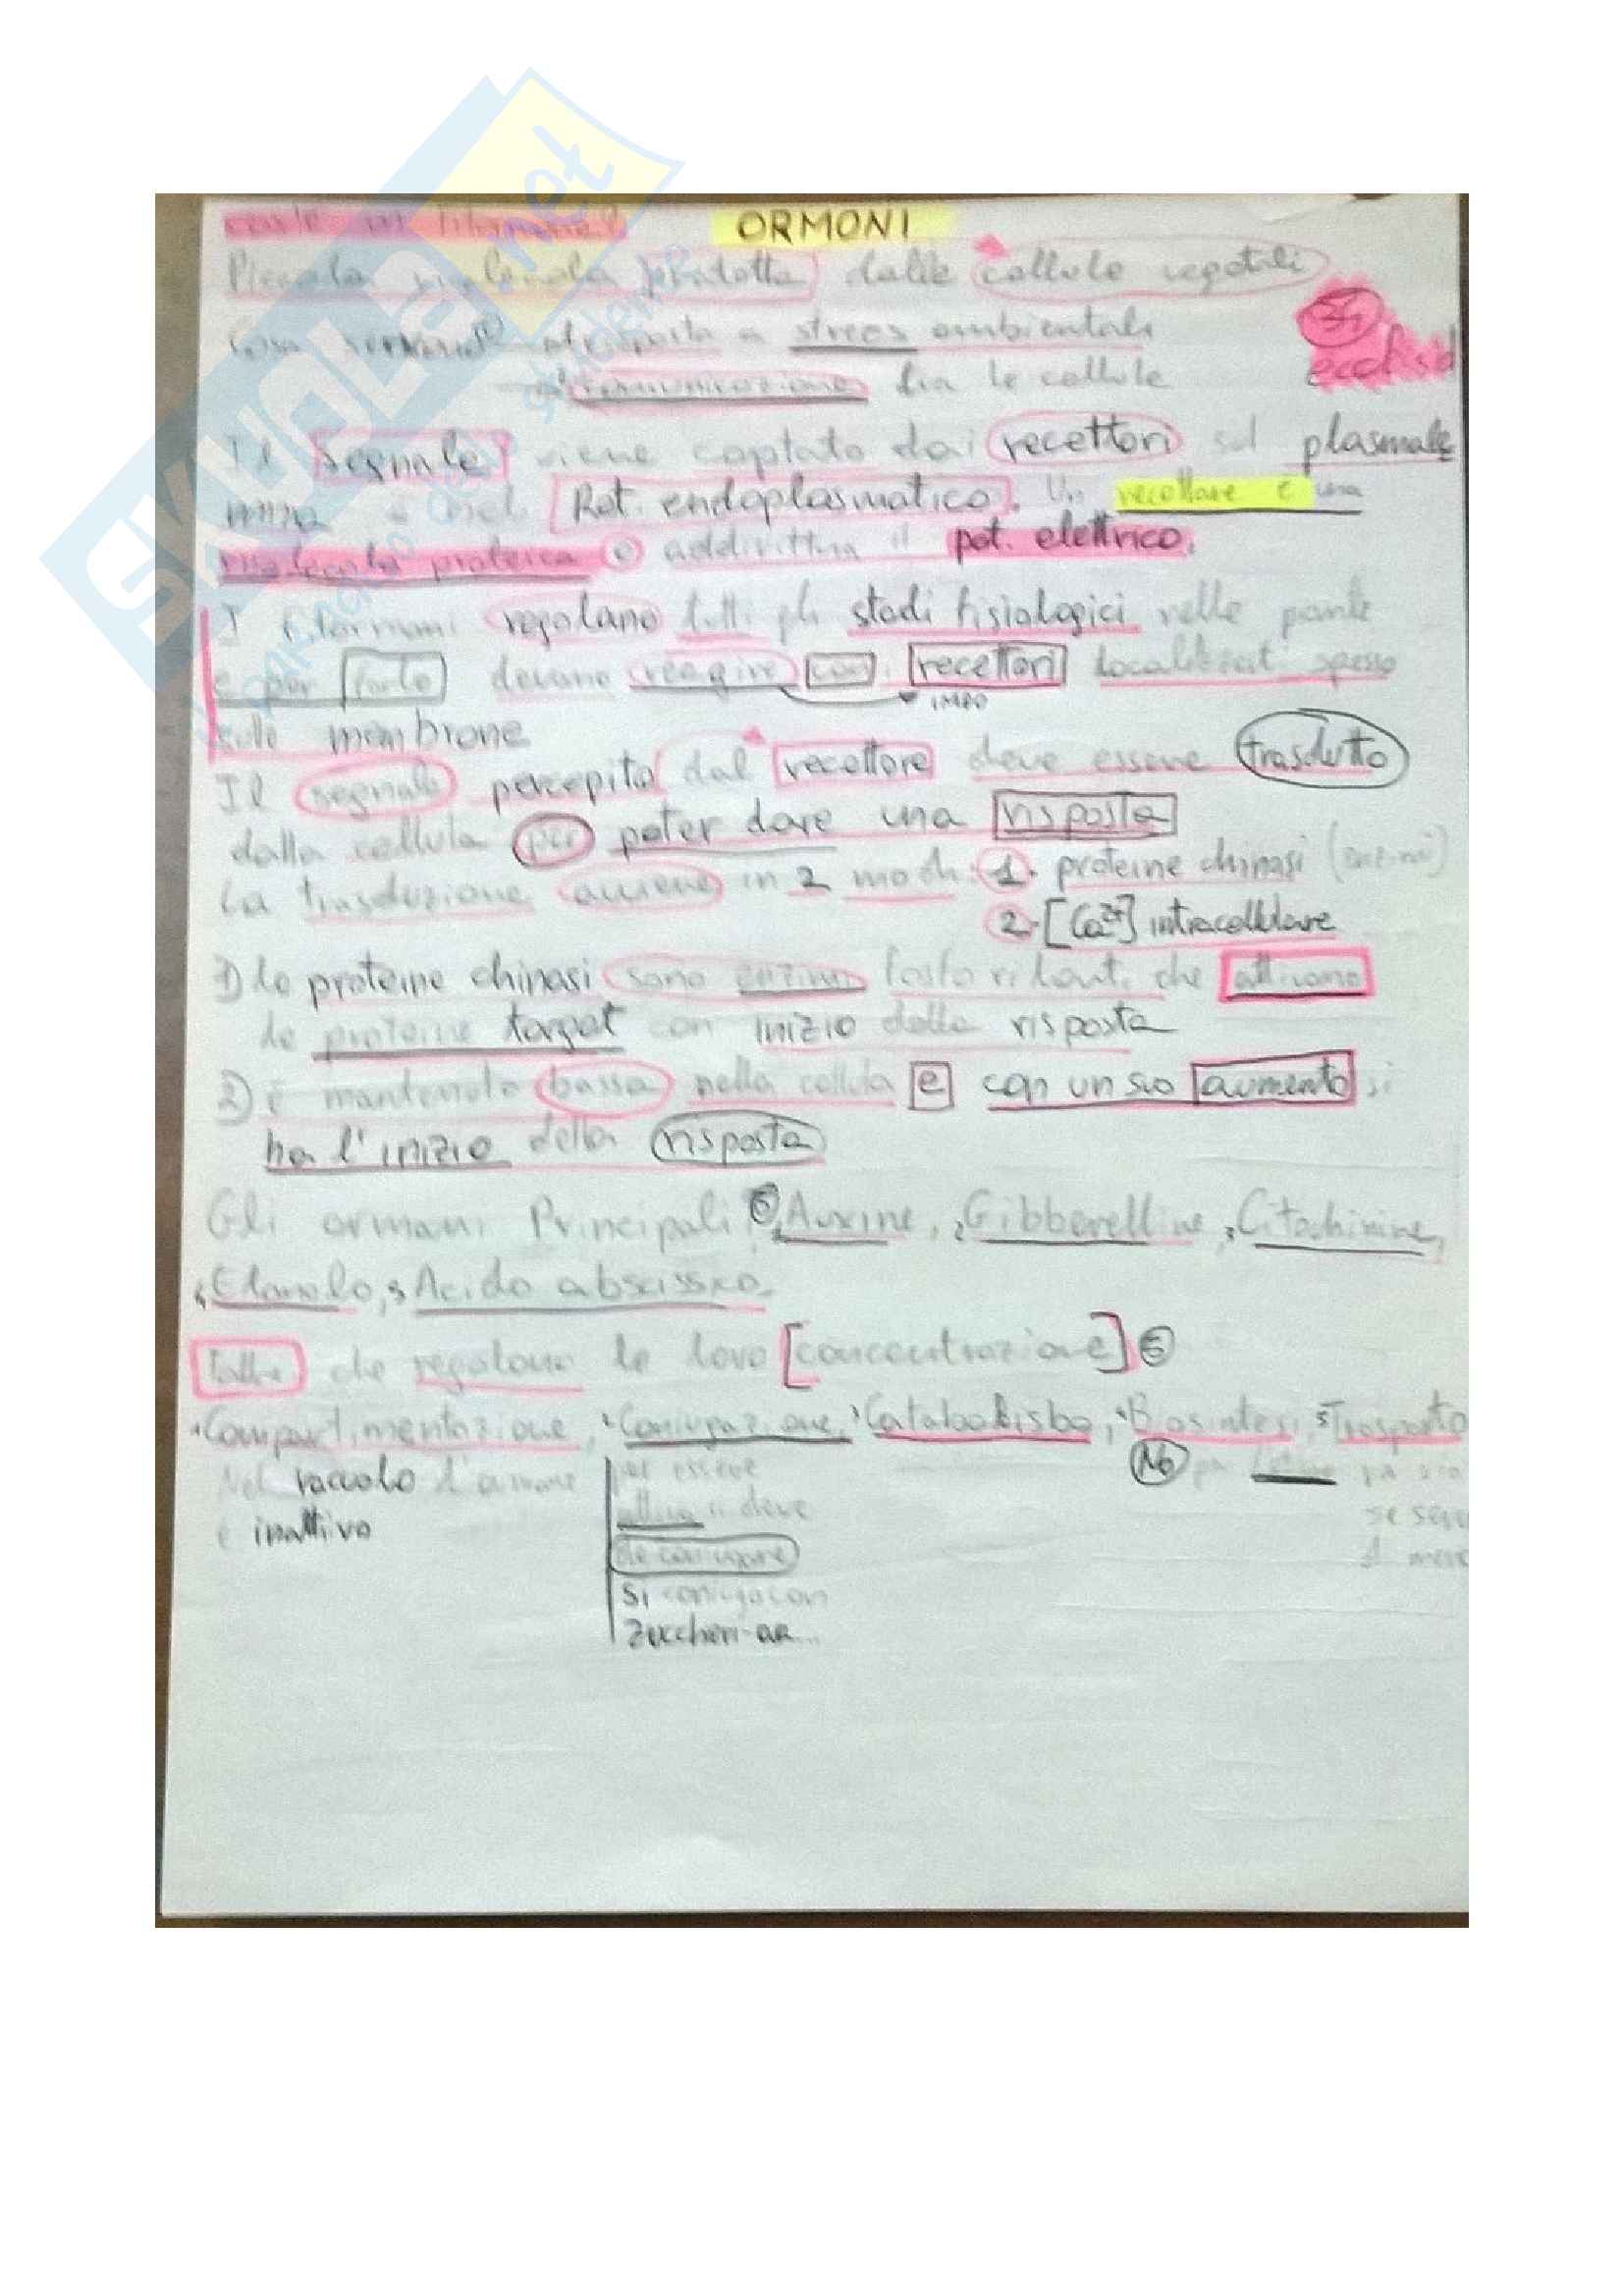 ORMONI
Piccola molecola prodotta dalle cellule vegetali
Cosa servono? risposta a stress ambientale
comunicazione tra le cellule
Il segnale viene captato dai recettori sul plasmale
mma e nel Ret. endoplasmatico. Un recettore è una
molecola proteica o addirittura il pot. elettrico.
I fitormoni regolano tutti gli stadi fisiologici nelle piante
e per farlo devono reagire con i recettori localizzati spesso
sulle membrane
IMPO
Il segnale percepito dal recettore deve essere trasdutto
dalla cellula per poter dare una risposta
La trasduzione avviene in 2 modi: 1. proteine chinasi (enzimi)
2. [Ca2+] intracellulare
1) le proteine chinasi sono enzimi fosforilanti che attivano
le proteine target con inizio della risposta
2) è mantenuta bassa nella cellula e con un suo aumento si
ha l'inizio della risposta
Gli ormoni Principali 5 1 Auxine, 2 Gibberelline, 3 Citochinine,
4 , 5 Acido abscissico.
Fattori che regolano la loro [concentrazione] 5
1 Compartimentazione, 2 Coniugazione, 3 , 4 Biosintesi, 5 Trasporto
Nel vacuolo l'ormone
è inattivo
per essere
attivo si deve
deconiugare
Si coniuga con
zuccheri-aa...
No
se
SKUOLA.net